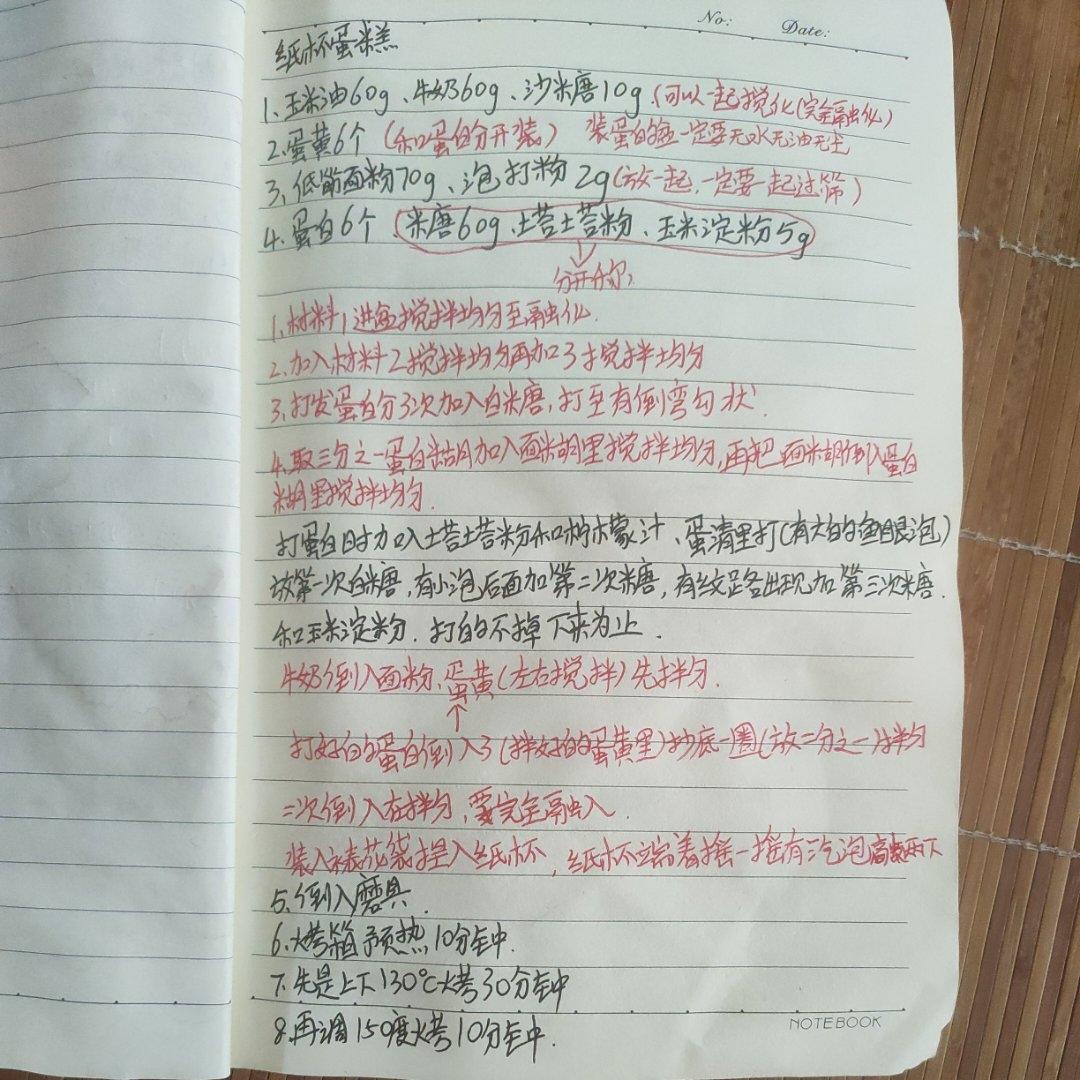 No:
Date:
纸杯蛋糕
1.玉米油60g、牛奶60g、沙糖10g(可以一起搅化(完全融化)
2.蛋黄6个(和蛋白分开装) 装蛋的盆一定要无水无油无尘
3.低筋面粉70g、泡打粉2g(放一起,一定要一起过筛)
4.蛋白6个(糖60g、土苔土苔粉、玉米淀粉5g)
分开称
1.材料1进盆搅拌均匀至融化.
2.加入材料2搅拌均匀再加3搅拌均匀
3.打发蛋白分3次加入白糖,打至有倒弯勾状.
4.取三分之一蛋白糊加入面糊里搅拌均匀,再把面糊倒入蛋白
糊里搅拌均匀.
打蛋白时加入土苔土苔粉和柠檬汁、蛋清里打(有大的鱼眼泡)
放第一次白糖,有小泡后面加第二次糖,有纹路出现加第三次糖.
和玉米淀粉.打的不掉下来为止.
牛奶倒入面粉、蛋黄(左右搅拌)先拌匀.
打好的蛋白倒入3(拌好的蛋黄里)抄底一圈(放二分之一)拌匀
二次倒入在拌匀,要完全融入.
装入裱花袋挰入纸杯,纸杯端着摇一摇有汽泡高震两下
5.倒入磨具.
6.烤箱予预热10分钟.
7.先是上下130℃烤30分钟
8.再调150度烤10分钟.
NOTEBOOK